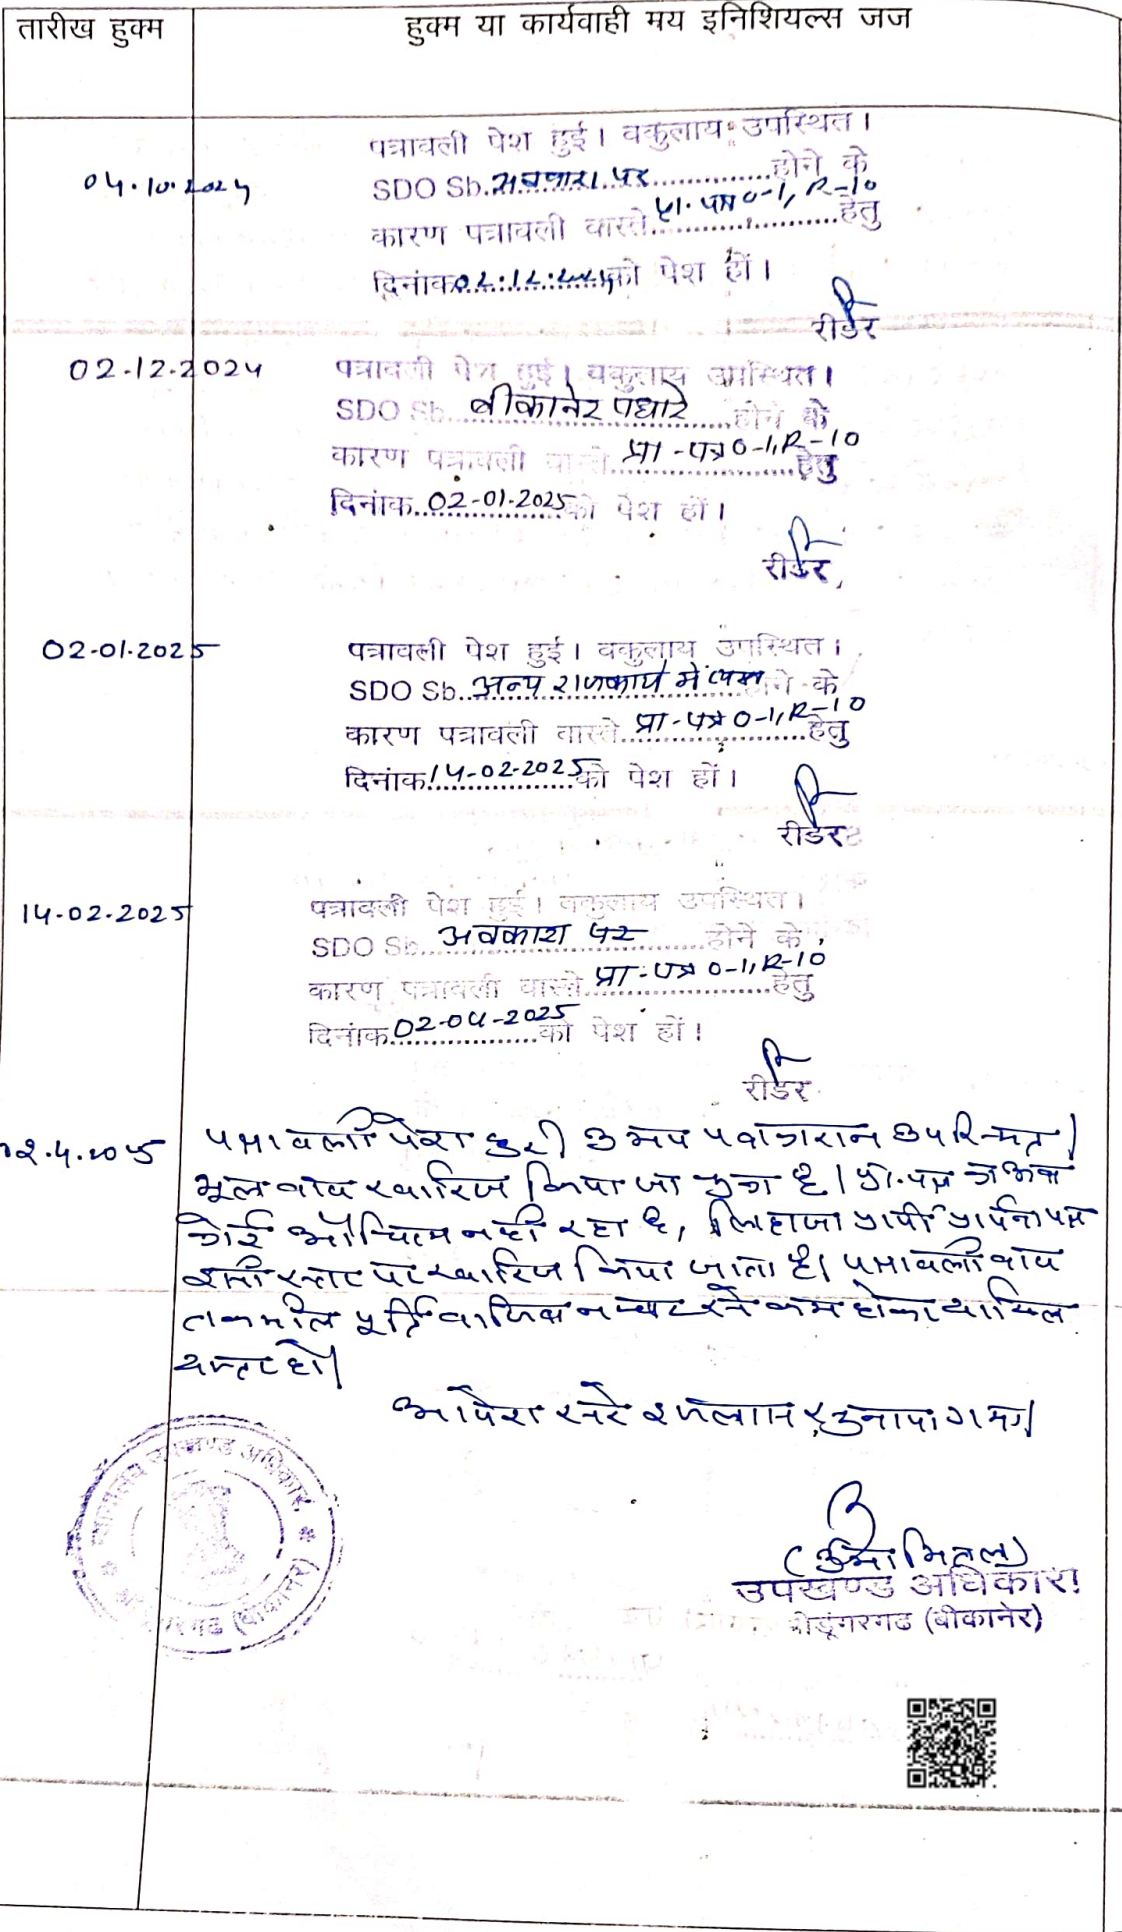 तारीख हुक्म
हुक्म या कार्यवाही मय इनिशियल्स जज
04.10.2024
पत्रावली पेश हुई। वकुलाय उपस्थित।
SDO Sb. अवकाश पर होने के
कारण पत्रावली वास्ते प्रा. पत्र 0-1, R-10 हेतु
दिनांक 02.12.2024 को पेश हों।
रीडर
02.12.2024
पत्रावली पेश हुई। वकुलाय उपस्थित।
SDO Sb. बीकानेर पधारे होने के
कारण पत्रावली वास्ते प्रा-पत्र 0-1, R-10 हेतु
दिनांक 02-01-2025 को पेश हों।
रीडर
02-01.2025
पत्रावली पेश हुई। वकुलाय उपस्थित।
SDO Sb. अन्य राजकार्य में व्यस्त होने के
कारण पत्रावली वास्ते प्रा-पत्र 0-1, R-10 हेतु
दिनांक 14-02-2025 को पेश हों।
रीडर
14-02.2025
पत्रावली पेश हुई। वकुलाय उपस्थित।
SDO Sb. अवकाश पर होने के
कारण पत्रावली वास्ते प्रा-पत्र 0-1, R-10 हेतु
दिनांक 02-04-2025 को पेश हों।
रीडर
02.4.2025
पत्रावली पेश हुई। उभय पक्षकारान उपस्थित।
मूल वाद खारिज किया जा चुका है। प्रा.पत्र का अब
कोई औचित्य नहीं रहा है, लिहाजा प्रार्थी प्रार्थना पत्र
इसी स्तर पर खारिज किया जाता है। पत्रावली बाद
तकमील पूर्ति नम्बर से कम होकर दाखिल
दफ्तर हो।
आदेश सरे इजलास सुनाया गया।
(उमा मित्तल)
उपखण्ड अधिकारी
श्रीडूंगरगढ (बीकानेर)
उपखण्ड अधिकारी
(बीकानेर)